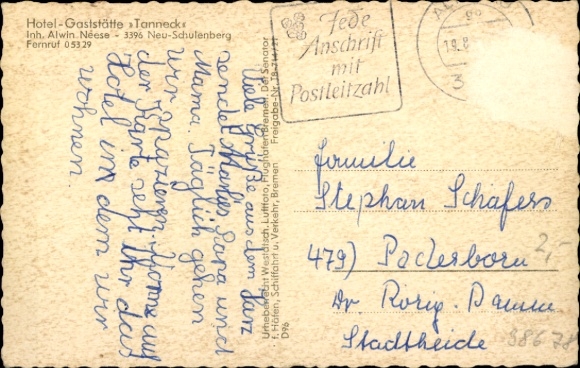 Hotel-Gaststätte »Tanneck«
Inh. Alwin Neese - 3396 Neu-Schulenberg
Fernruf 05329
Jede
Anschrift
mit
Postleitzahl
19.8
3
Viele Grüße aus dem Harz
sendet Markus, Jana und
Mama. Täglich gehen
wir spazieren. Vorne auf
der Karte seht Ihr das
Hotel in dem wir
wohnen.
Urheberrecht Westdtsch. Luftfoto, Flughafen Bremen. Der Senator
f. Häfen, Schiffahrt u. Verkehr, Bremen Freigabe-Nr.
D96
Familie
Stephan Schäfers
479) Paderborn
Dr. Rörig-Damm
Stadtheide